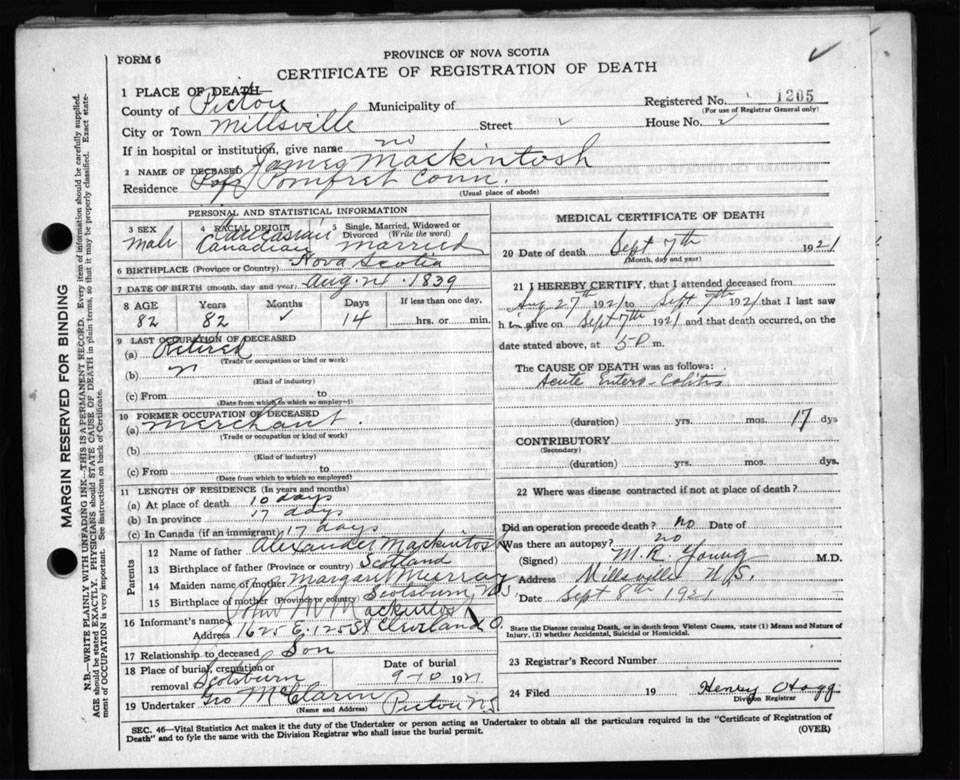 FORM 6
PROVINCE OF NOVA SCOTIA
CERTIFICATE OF REGISTRATION OF DEATH
1 PLACE OF DEATH—
County of Pictou Municipality of Registered No. 1205
(For use of Registrar General only)
City or Town Millsville Street House No.
If in hospital or institution, give name no
2 NAME OF DECEASED James Mackintosh
Residence Pomfret Conn.
(Usual place of abode)
MARGIN RESERVED FOR BINDING
N.B.—WRITE PLAINLY WITH UNFADING INK—THIS IS A PERMANENT RECORD. Every item of information should be carefully supplied.
AGE should be stated EXACTLY. PHYSICIANS should STATE CAUSE OF DEATH in plain terms, so that it may be properly classified. Exact state-
ment of OCCUPATION is very important. See instructions on back of Certificate.
PERSONAL AND STATISTICAL INFORMATION
3 SEX 4 RACIAL ORIGIN 5 Single, Married, Widowed or
Divorced (Write the word)
male Caucasian Canadian married
6 BIRTHPLACE (Province or Country) Nova Scotia
7 DATE OF BIRTH (month, day and year) Aug. 24. 1839
8 AGE Years Months Days If less than one day,
82 82 14 hrs. or min.
9 LAST OCCUPATION OF DECEASED
(a) Retired
(Trade or occupation or kind of work)
(b)
(Kind of industry)
(c) From to
(Date from which to which so employed)
10 FORMER OCCUPATION OF DECEASED
(a) merchant.
(Trade or occupation or kind of work)
(b)
(Kind of industry)
(c) From to
(Date from which to which employed)
11 LENGTH OF RESIDENCE (In years and months)
(a) At place of death 10 days
(b) In province 17 days
(c) In Canada (if an immigrant) 17 days
Parents
12 Name of father Alexander Mackintosh
13 Birthplace of father (Province or country) Scotland
14 Maiden name of mother Margaret Murray
15 Birthplace of mother (Province or country) Scotsburn, N.S.
16 Informant's name John Mackintosh
Address 1625 E. 125 St Cleveland O.
17 Relationship to deceased Son
18 Place of burial, cremation or Date of burial
removal Scotsburn 9-10 1921
19 Undertaker Geo McClaren Pictou N.S
(Name and Address)
MEDICAL CERTIFICATE OF DEATH
20 Date of death Sept 7th 1921
(Month, day and year)
21 I HEREBY CERTIFY, that I attended deceased from
Aug 27th 1921 to Sept 7th 1921 that I last saw
him alive on Sept 7th 1921 and that death occurred, on the
date stated above, at 5 P. m.
The CAUSE OF DEATH was as follows:
Acute Entero-Colitis
(duration) yrs. mos. 17 dys
CONTRIBUTORY
(Secondary)
(duration) yrs. mos. dys.
22 Where was disease contracted if not at place of death?
Did an operation precede death? no Date of
Was there an autopsy? no
(Signed) M.R. Young M.D.
Address Millsville N.S.
Date Sept 8th 1921
State the Disease causing Death, or in death from Violent Causes, state (1) Means and Nature of
Injury, (2) whether Accidental, Suicidal or Homicidal.
23 Registrar's Record Number
24 Filed 19 Henry Hogg
Division Registrar
SEC. 46—Vital Statistics Act makes it the duty of the Undertaker or person acting as Undertaker to obtain all the particulars required in the "Certificate of Registration of
Death" and to fyle the same with the Division Registrar who shall issue the burial permit.
(OVER)